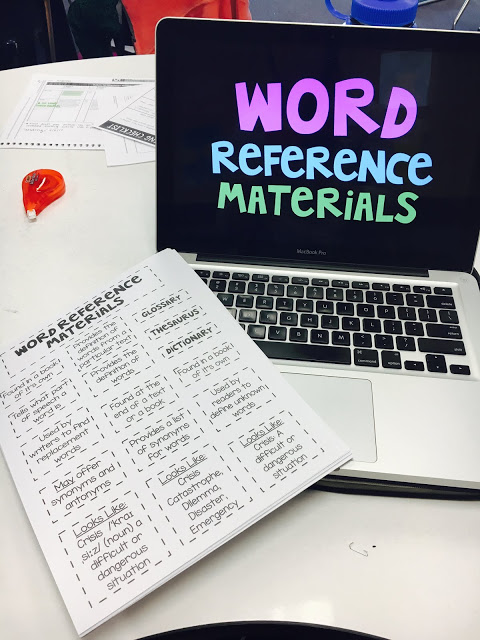 WORD
REFERENCE
MATERIALS
MacBook Pro
WORD REFERENCE
MATERIALS
Found in a book
of it's own
Provides the
definition of
words from a
particular text
GLOSSARY
THESAURUS
DICTIONARY
Tells what part
of speech a
word is
Provides the
definition of
words
Found in a book
of it's own
Used by
writers to find
replacement
words
Found at the
end of a text
or a book
Used by
readers to
define unknown
words
May offer
synonyms and
antonyms
Provides a list
of synonyms
for words
Looks Like:
Crisis: A
difficult or
dangerous
situation
Looks Like:
Crisis /'kraɪ
,si:z/ (noun) a
difficult or
dangerous
situation
Looks Like:
Crisis
Catastrophe,
Dilemma,
Disaster,
Emergency